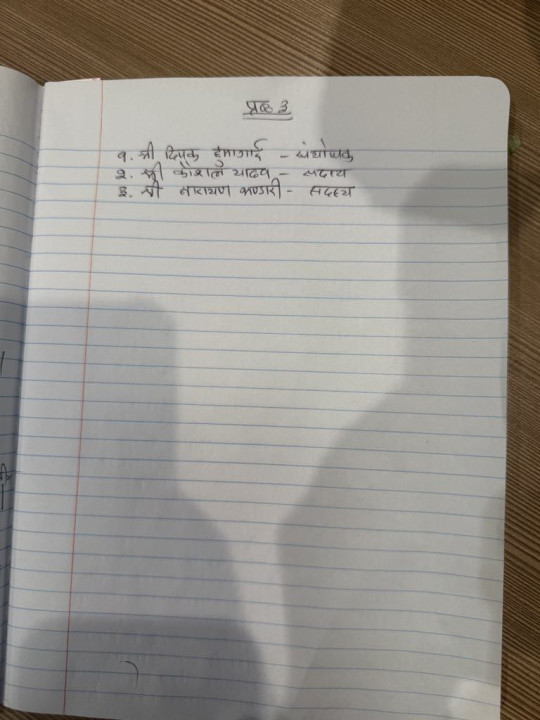 १. श्री दिपक हुमागाई - संयोजक
२. श्री कौशल यादव - सदस्य
३. श्री नारायण भण्डारी - सदस्य